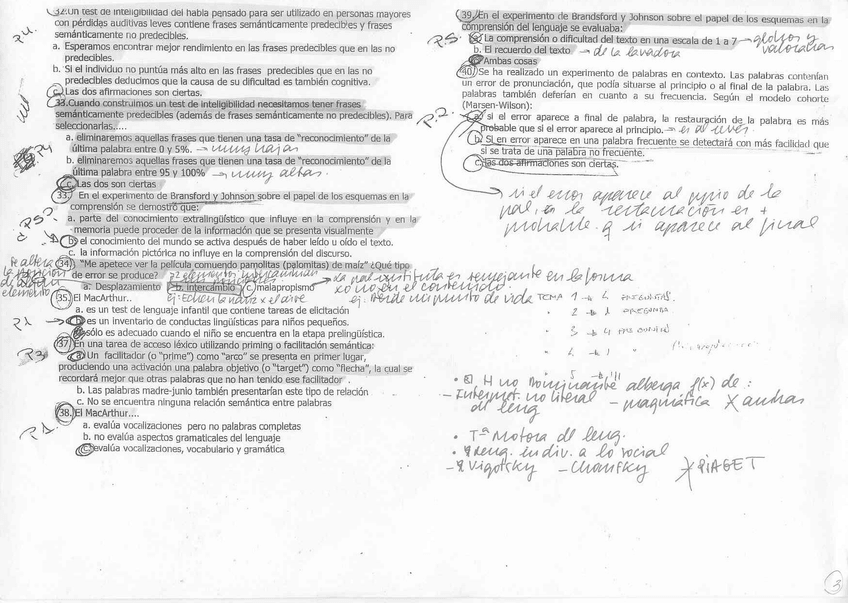 32.Un test de inteligibilidad del habla pensado para ser utilizado en personas mayores
con pérdidas auditivas leves contiene frases semánticamente predecibles y frases
semánticamente no predecibles.
a. Esperamos encontrar mejor rendimiento en las frases predecibles que en las no
predecibles.
b. Si el individuo no puntúa más alto en las frases predecibles que en las no
predecibles deducimos que la causa de su dificultad es también cognitiva.
c. Las dos afirmaciones son ciertas.
33.Cuando construimos un test de inteligibilidad necesitamos tener frases
semánticamente predecibles (además de frases semánticamente no predecibles). Para
seleccionarlas....
a. eliminaremos aquellas frases que tienen una tasa de "reconocimiento" de la
última palabra entre 0 y 5%. → muy bajas
b. eliminaremos aquellas frases que tienen una tasa de "reconocimiento" de la
última palabra entre 95 y 100% → muy altas.
P4
c. Las dos son ciertas
33. En el experimento de Bransford y Johnson sobre el papel de los esquemas en la
comprensión se demostró que:
P5?
a. parte del conocimiento extralingüístico que influye en la comprensión y en la
memoria puede proceder de la información que se presenta visualmente
b. el conocimiento del mundo se activa después de haber leído u oído el texto.
c. la información pictórica no influye en la comprensión del discurso.
34) "Me apetece ver la película comuendo pamolitas (palomitas) de maíz" ¿Qué tipo
de error se produce?
a. Desplazamiento b. intercambio c. malapropismo
→ La pal sustituta es semejante en la forma
xo no en el contenido.
35. El MacArthur..
a. es un test de lenguaje infantil que contiene tareas de elicitación
P1 → b. es un inventario de conductas lingüísticas para niños pequeños.
sólo es adecuado cuando el niño se encuentra en la etapa prelingüística.
37) En una tarea de acceso léxico utilizando priming o facilitación semántica:
P3
a. Un facilitador (o "prime") como "arco" se presenta en primer lugar,
produciendo una activación una palabra objetivo (o "target") como "flecha", la cual se
recordará mejor que otras palabras que no han tenido ese facilitador .
b. Las palabras madre-junio también presentarían este tipo de relación
c. No se encuentra ninguna relación semántica entre palabras
38. El MacArthur....
P1.
a. evalúa vocalizaciones pero no palabras completas
b. no evalúa aspectos gramaticales del lenguaje
c. evalúa vocalizaciones, vocabulario y gramática
39. En el experimento de Brandsford y Johnson sobre el papel de los esquemas en la
comprensión del lenguaje se evaluaba:
P.5.
a. La comprensión o dificultad del texto en una escala de 1 a 7
b. El recuerdo del texto → de la lavadora
c. Ambas cosas
40. Se ha realizado un experimento de palabras en contexto. Las palabras contenían
un error de pronunciación, que podía situarse al principio o al final de la palabra. Las
palabras también deferían en cuanto a su frecuencia. Según el modelo cohorte
(Marsen-Wilson):
P.2.
a. si el error aparece a final de palabra, la restauración de la palabra es más
probable que si el error aparece al principio. → es al revés.
b. Si en error aparece en una palabra frecuente se detectará con más facilidad que
si se trata de una palabra no frecuente.
c. las dos afirmaciones son ciertas.
→ si el error aparece al ppio de la
pal, es la restauración es +
probable q si aparece al final
TEMA 1 → 4 PREGUNTAS.
" 2 → 1 PREGUNTA
" 3 → 4
" 4 → 1
" 5 →
• H no Dominante alberga f(x) de :
- Interpret. no literal - pragmática X ambas
del leng
• Tª Motora del leng.
• leng. indiv. a lo social
- Vigotsky - Chomsky X PIAGET
3